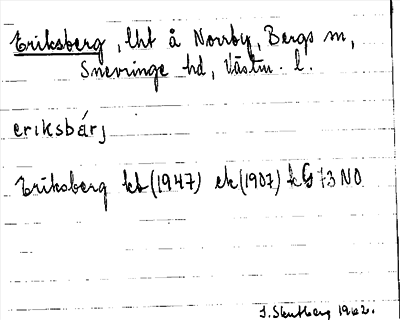 Eriksberg, lht å Norrby, Bergs sn,
Snevringe hd, Västm. l.
eriksbárj
Eriksberg kb (1947) ek (1907) kG 73 NO
1962.